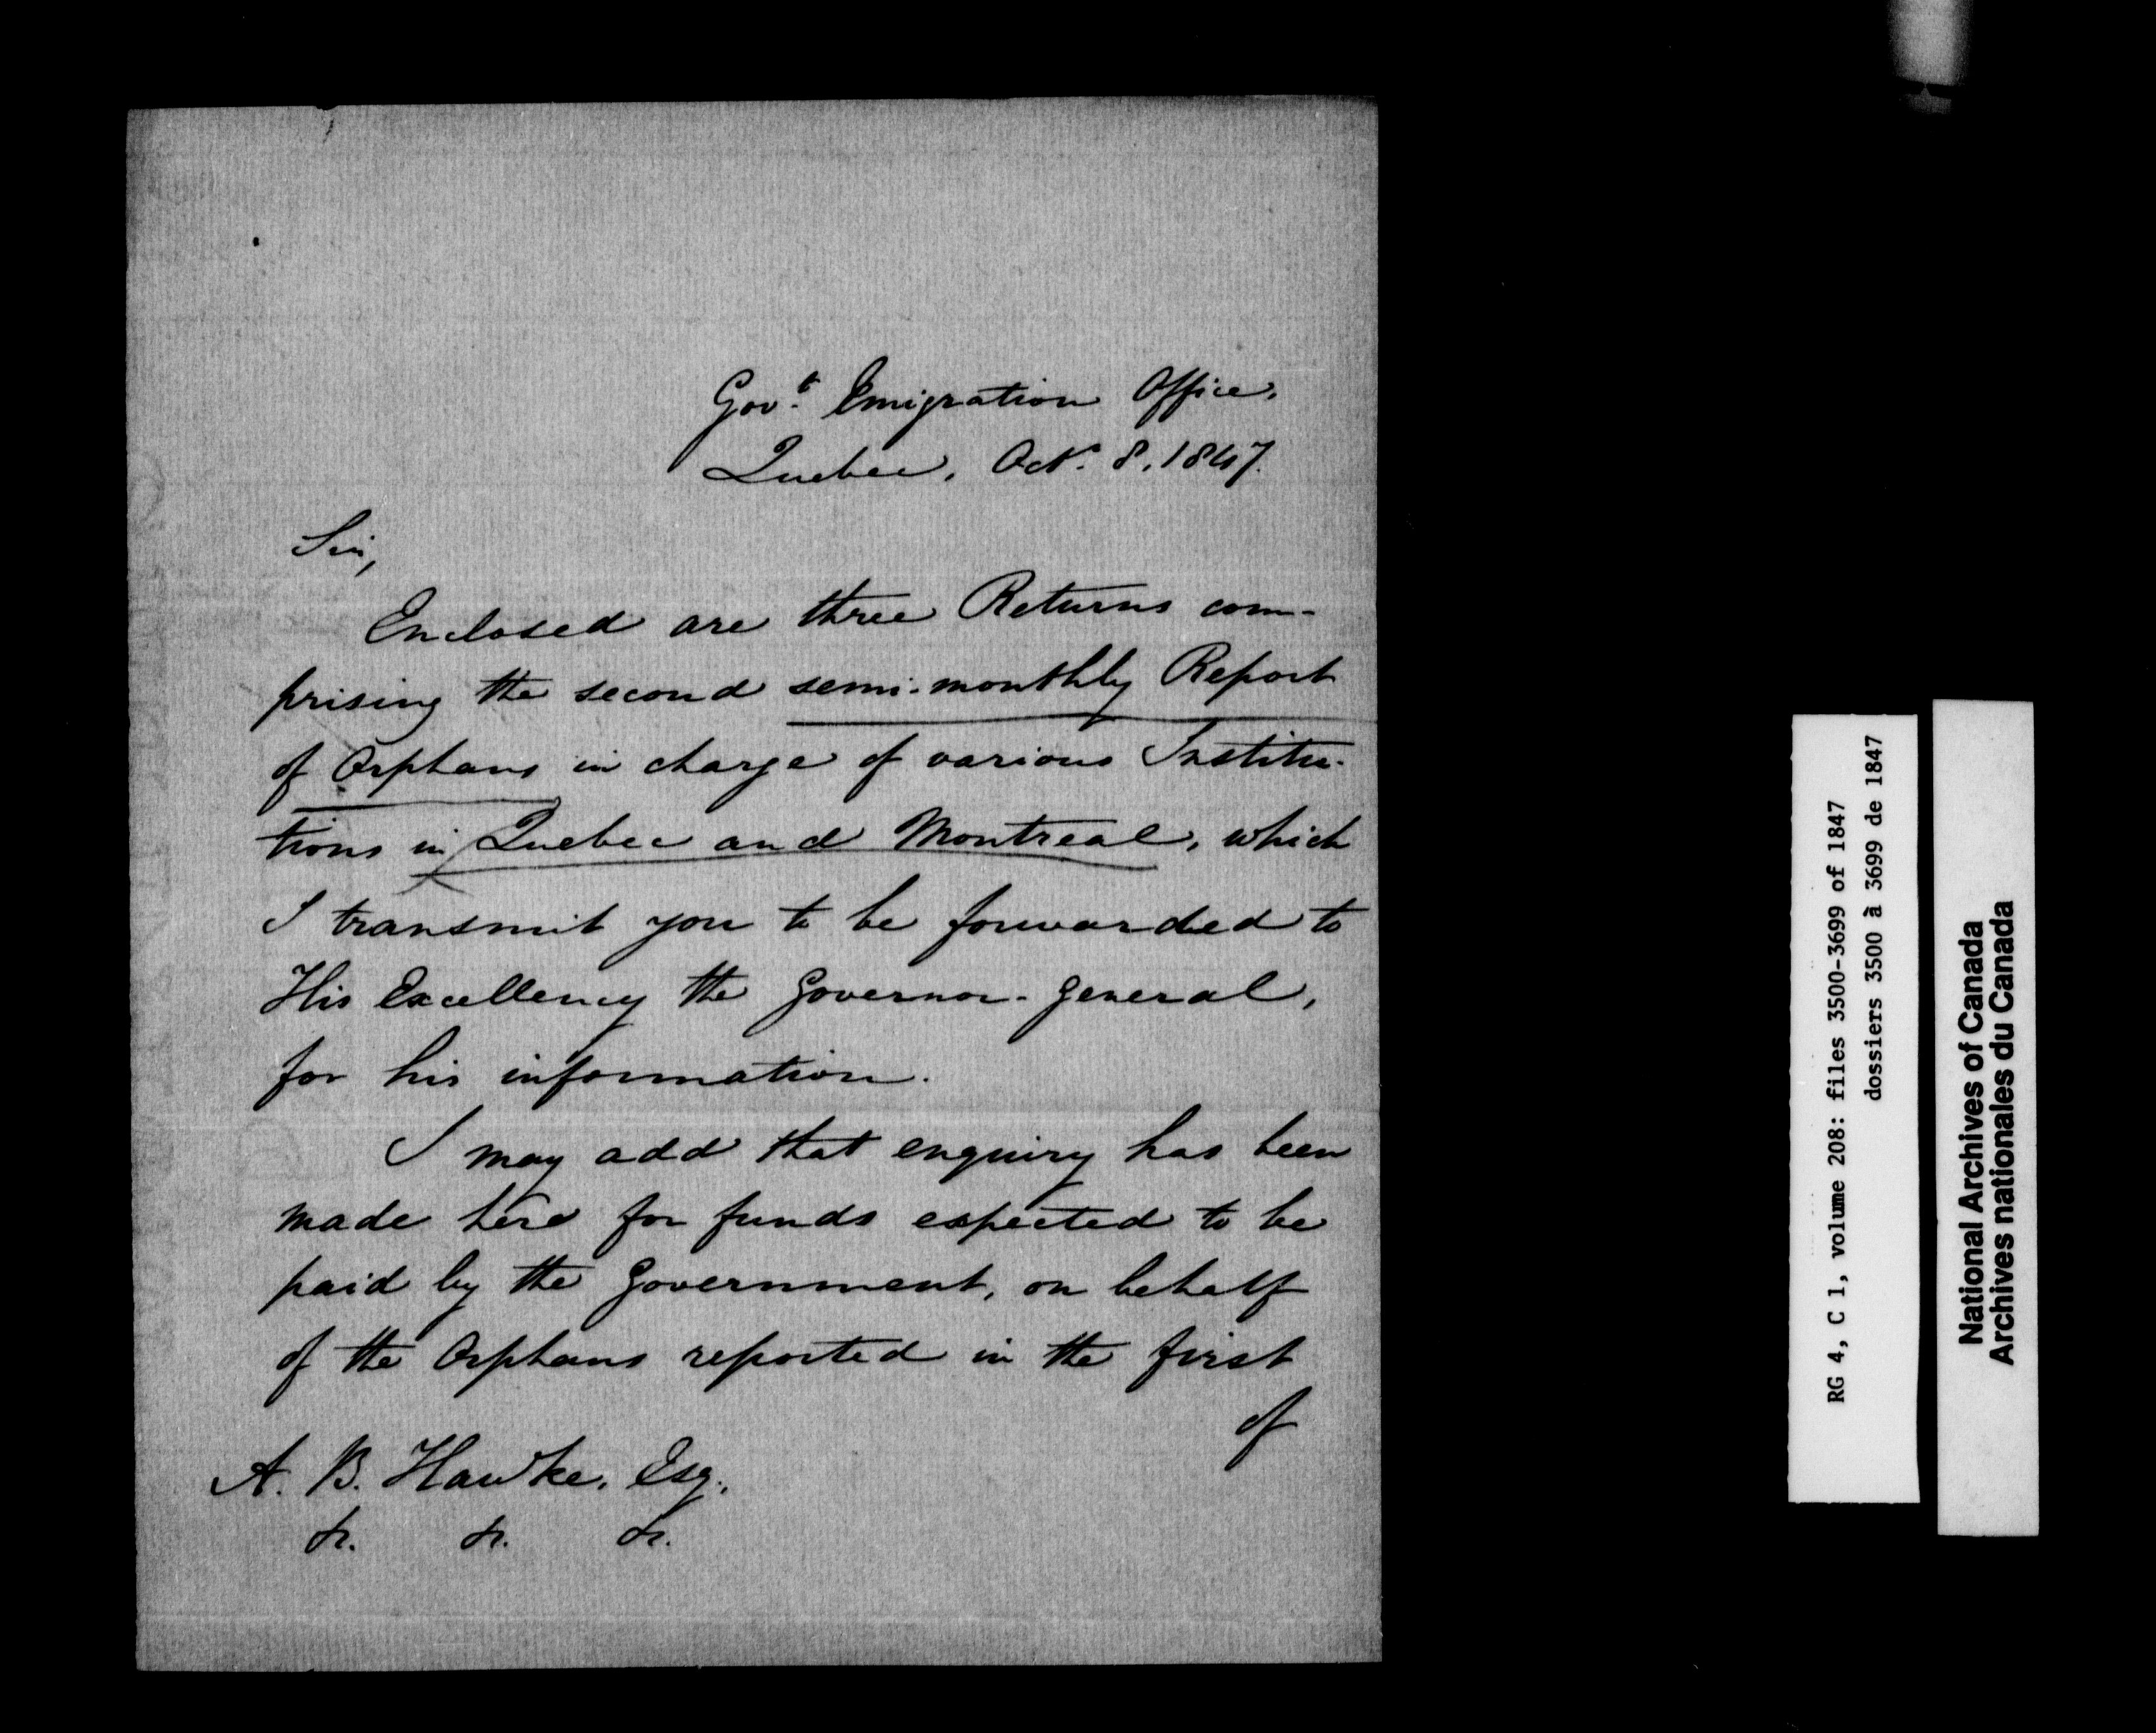 Govt. Emigration Office,
Quebec, Octr. 8, 1847.
Sir,
Enclosed are three Returns com-
prising the second semi-monthly Report
of Orphans in charge of various Institu-
tions in Quebec and Montreal, which
I transmit you to be forwarded to
His Excellency the Governor-General,
for his information.
I may add that enquiry has been
made here for funds expected to be
paid by the Government, on behalf
of the Orphans reported in the first
of
A. B. Hawke, Esq.,
&c. &c. &c.
RG 4, C 1, volume 208: files 3500-3699 of 1847
dossiers 3500 à 3699 de 1847
National Archives of Canada
Archives nationales du Canada